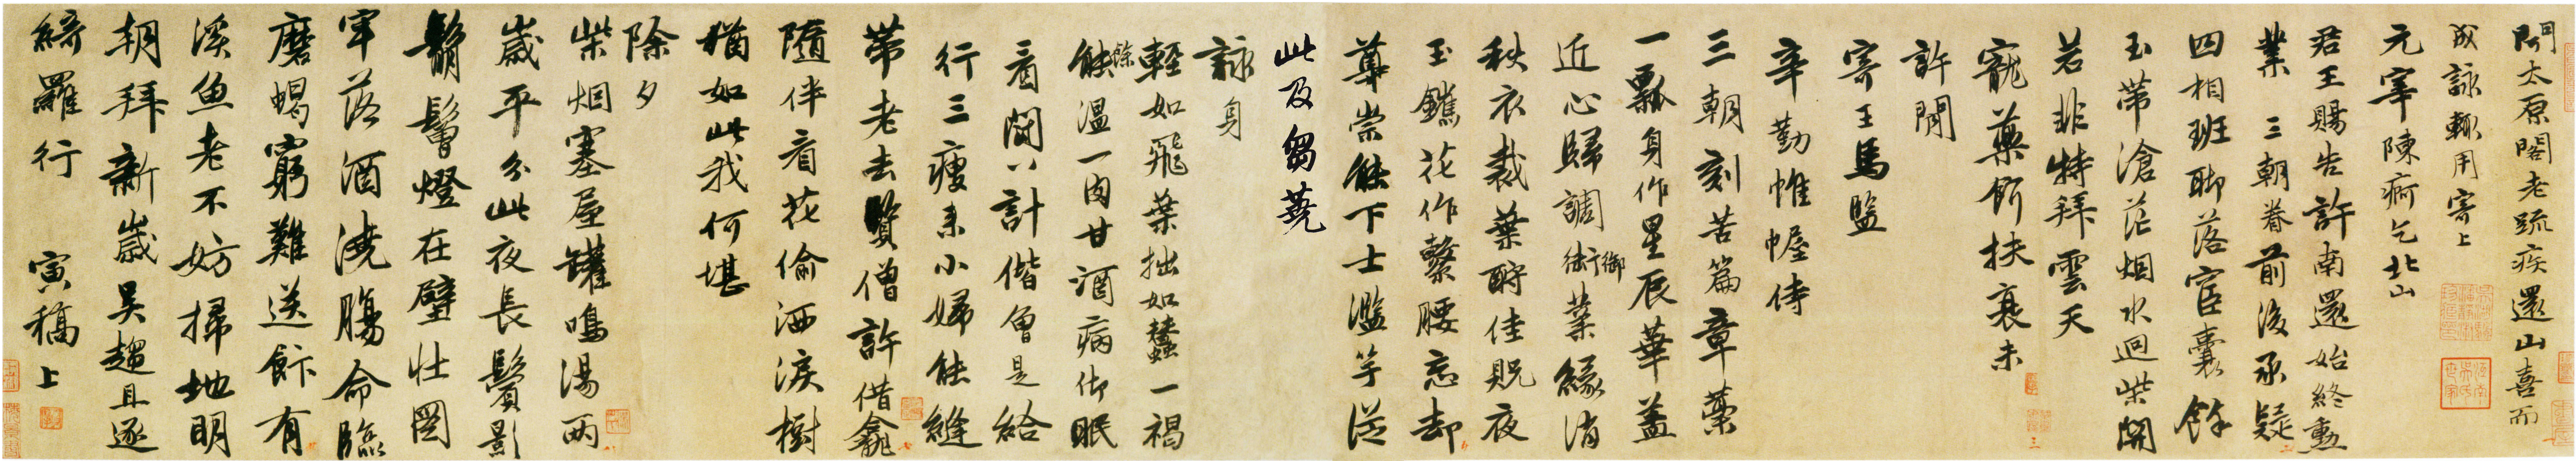 聞太原閣老疏疾還山喜而
成詠輒用寄上
元宰陳痾乞北山
君王賜告許南還始終勳
業三朝眷前後承疑
四相班聊落宦囊餘
玉帶滄茫烟水迥柴關
若非特拜雲天
寵藥餌扶衰未
許閒
寄王馬監
辛勤帷幄侍
三朝刻苦篇章藥
一瓢身作星辰華蓋
近心歸調御葉緣消
秋衣裁葉酧佳貺夜
玉鑴花作繫腰忘却
尊崇能下士濫竽從
此及芻蕘
詠身
輕如飛葉拙如蠶一褐
餘溫一肉甘酒病佐眠
看閙八計偕曾是給
行三瘦來小婦能縫
帶老去賢僧許借龕
隨伴看花偷洒淚樹
猶如此我何堪
除夕
柴烟塞屋罐鳴湯兩
歲平分此夜長鬢影
鬅鬙燈在壁壯圖
牢落酒澆腸命臨
磨蝎窮難送餅有
溪魚老不妨掃地明
朝拜新歲吴趨且逐
綺羅行 寅稿上